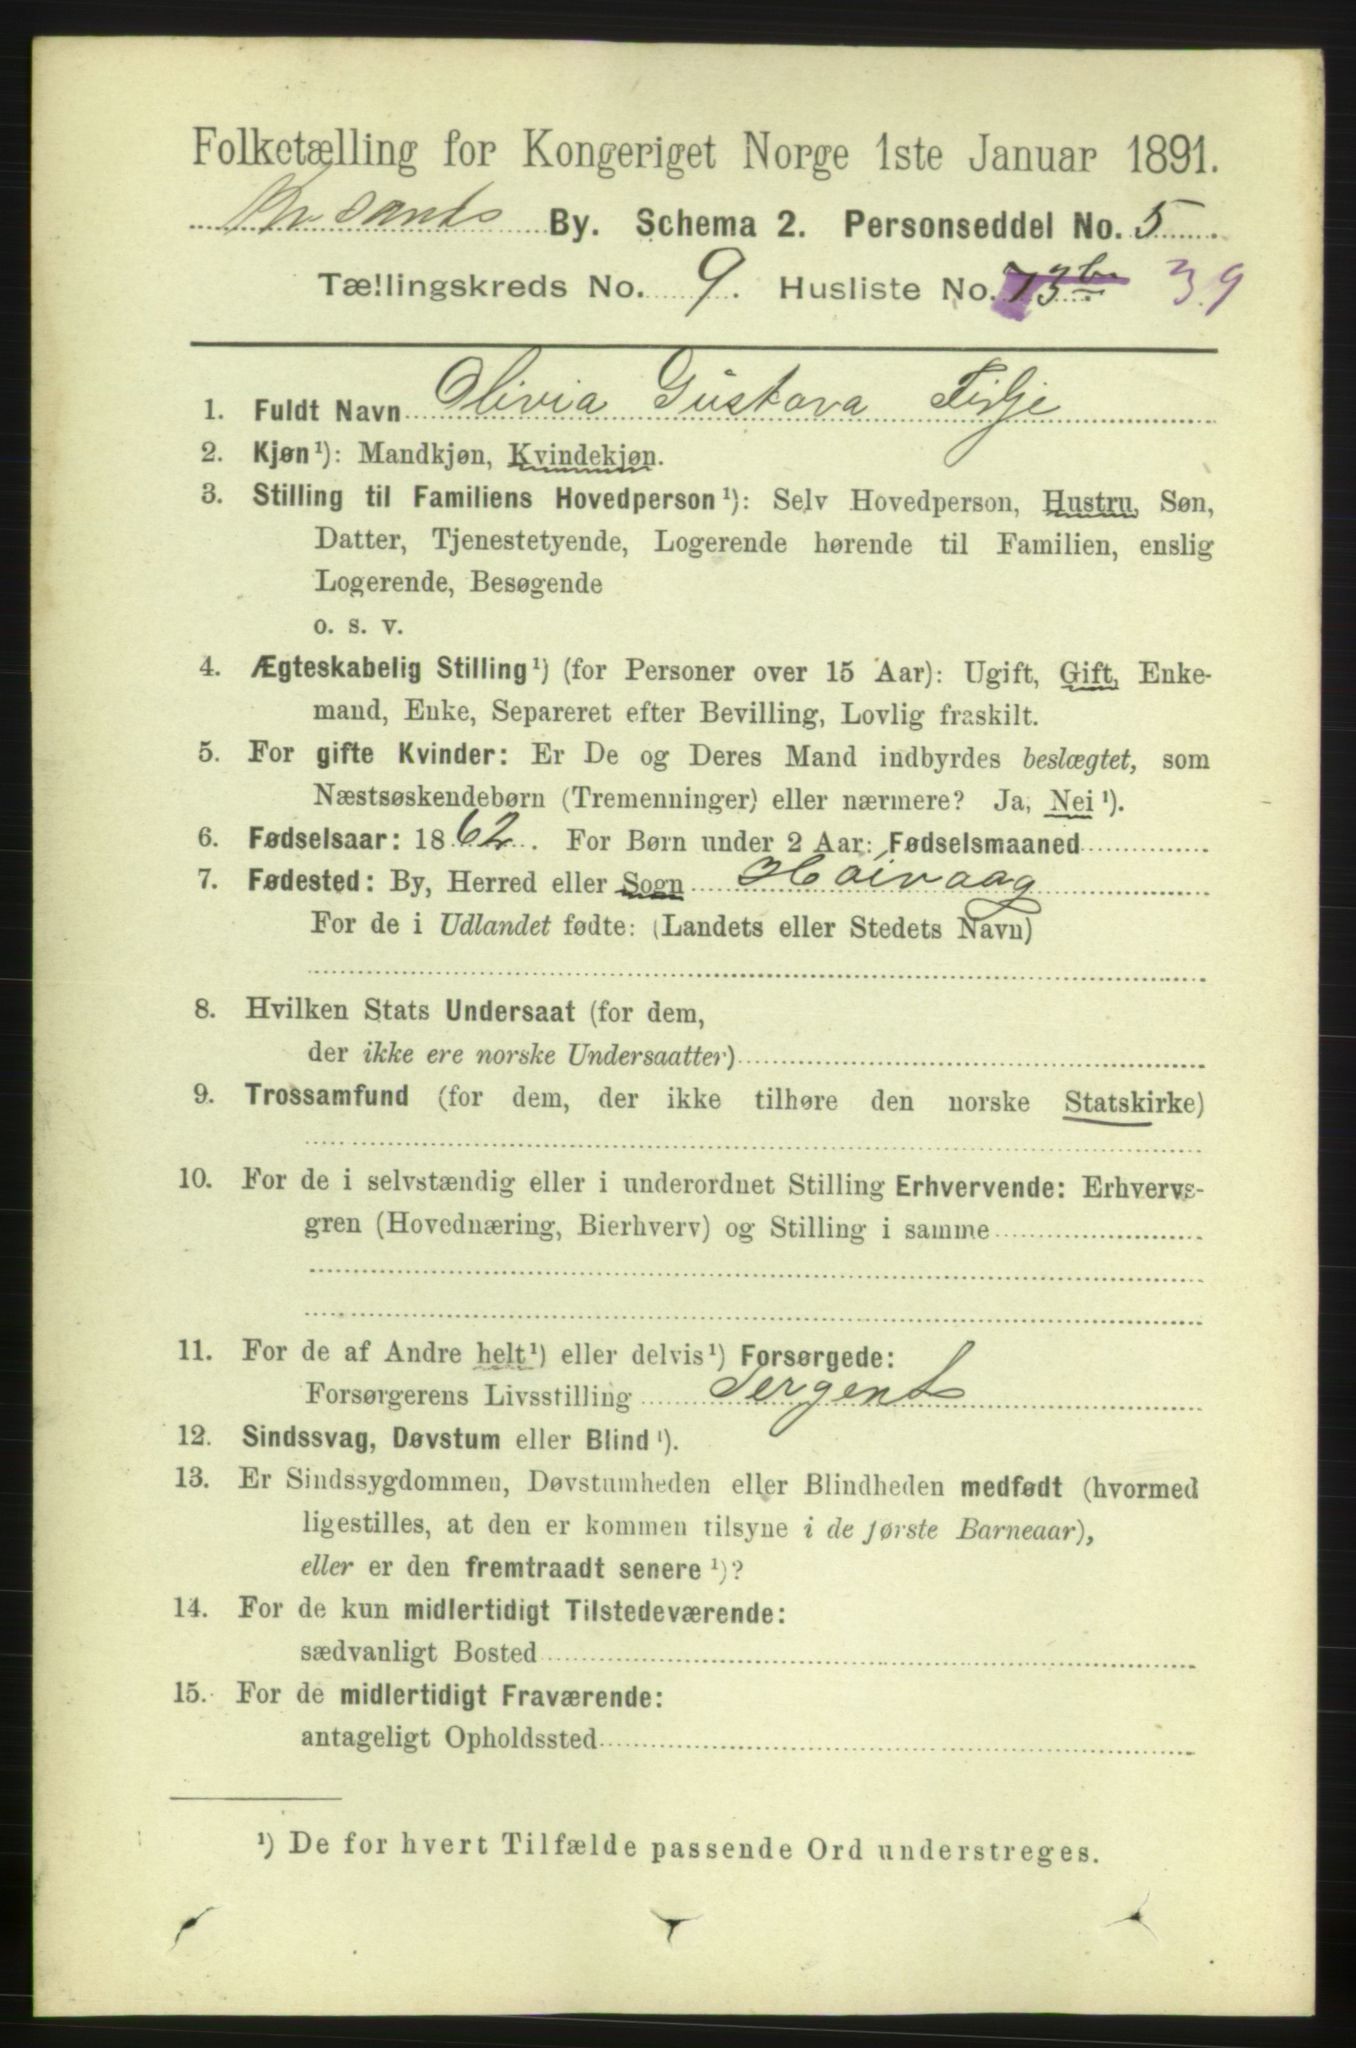 Folketælling for Kongeriget Norge 1ste Januar 1891.
Kr.sands By. Schema 2. Personseddel No. 5
Tællingskreds No. 9. Husliste No. 73b 39
1. Fuldt Navn Olivia Gustava Fidje
2. Kjøn¹): Mandkjøn, Kvindekjøn.
3. Stilling til Familiens Hovedperson¹): Selv Hovedperson, Hustru, Søn,
Datter, Tjenestetyende, Logerende hørende til Familien, enslig
Logerende, Besøgende
o. s. v.
4. Ægteskabelig Stilling¹) (for Personer over 15 Aar): Ugift, Gift, Enke-
mand, Enke, Separeret efter Bevilling, Lovlig fraskilt.
5. For gifte Kvinder: Er De og Deres Mand indbyrdes beslægtet, som
Næstsøskendebørn (Tremenninger) eller nærmere? Ja, Nei¹).
6. Fødselsaar: 1862. For Børn under 2 Aar: Fødselsmaaned
7. Fødested: By, Herred eller Sogn Høivaag
For de i Udlandet fødte: (Landets eller Stedets Navn)
8. Hvilken Stats Undersaat (for dem,
der ikke ere norske Undersaatter)
9. Trossamfund (for dem, der ikke tilhøre den norske Statskirke)
10. For de i selvstændig eller i underordnet Stilling Erhvervende: Erhvervs-
gren (Hovednæring, Bierhverv) og Stilling i samme
11. For de af Andre helt¹) eller delvis¹) Forsørgede:
Forsørgerens Livsstilling Sergent
12. Sindssvag, Døvstum eller Blind¹).
13. Er Sindssygdommen, Døvstumheden eller Blindheden medfødt (hvormed
ligestilles, at den er kommen tilsyne i de første Barneaar),
eller er den fremtraadt senere¹)?
14. For de kun midlertidigt Tilstedeværende:
sædvanligt Bosted
15. For de midlertidigt Fraværende:
antageligt Opholdssted
¹) De for hvert Tilfælde passende Ord understreges.